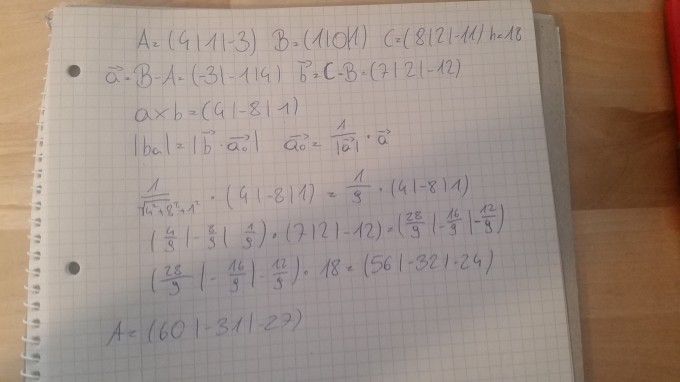 A = (4|1|-3) B = (1|0|1) C = (8|2|-11) h = 18
a⃗ = B-A = (-3|-1|4) b⃗ = C-B = (7|2|-12)
a×b = (4|-8|1)
|ba| = |b⃗ · a⃗₀| a⃗₀ = 1/|a⃗| · a⃗
1/√(4²+8²+1²) · (4|-8|1) = 1/9 · (4|-8|1)
(4/9|-8/9|1/9) · (7|2|-12) = (28/9|-16/9|-12/9)
(28/9|-16/9|-12/9) · 18 = (56|-32|-24)
A = (60|-31|-27)